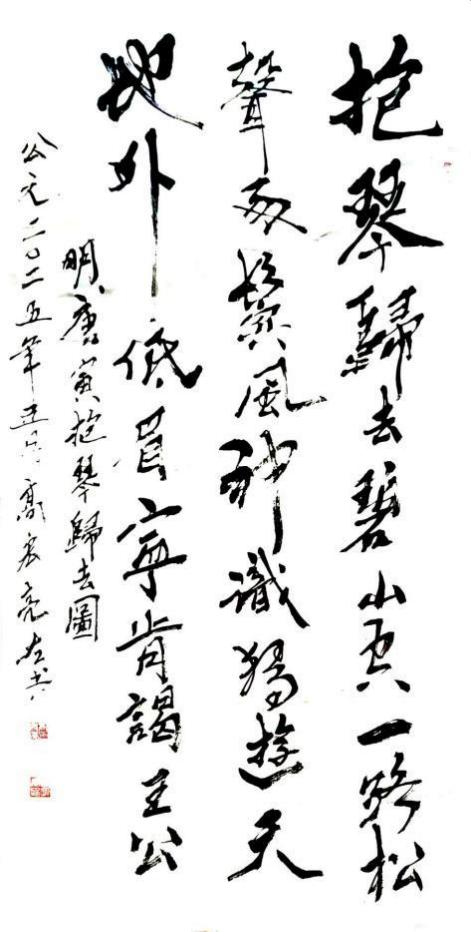 抱琴歸去碧山空一路松
聲兩鬢風神識獨遊天
地外低眉寧肯謁王公
明唐寅抱琴歸去圖
公元二〇二五年正月高宏亮左书